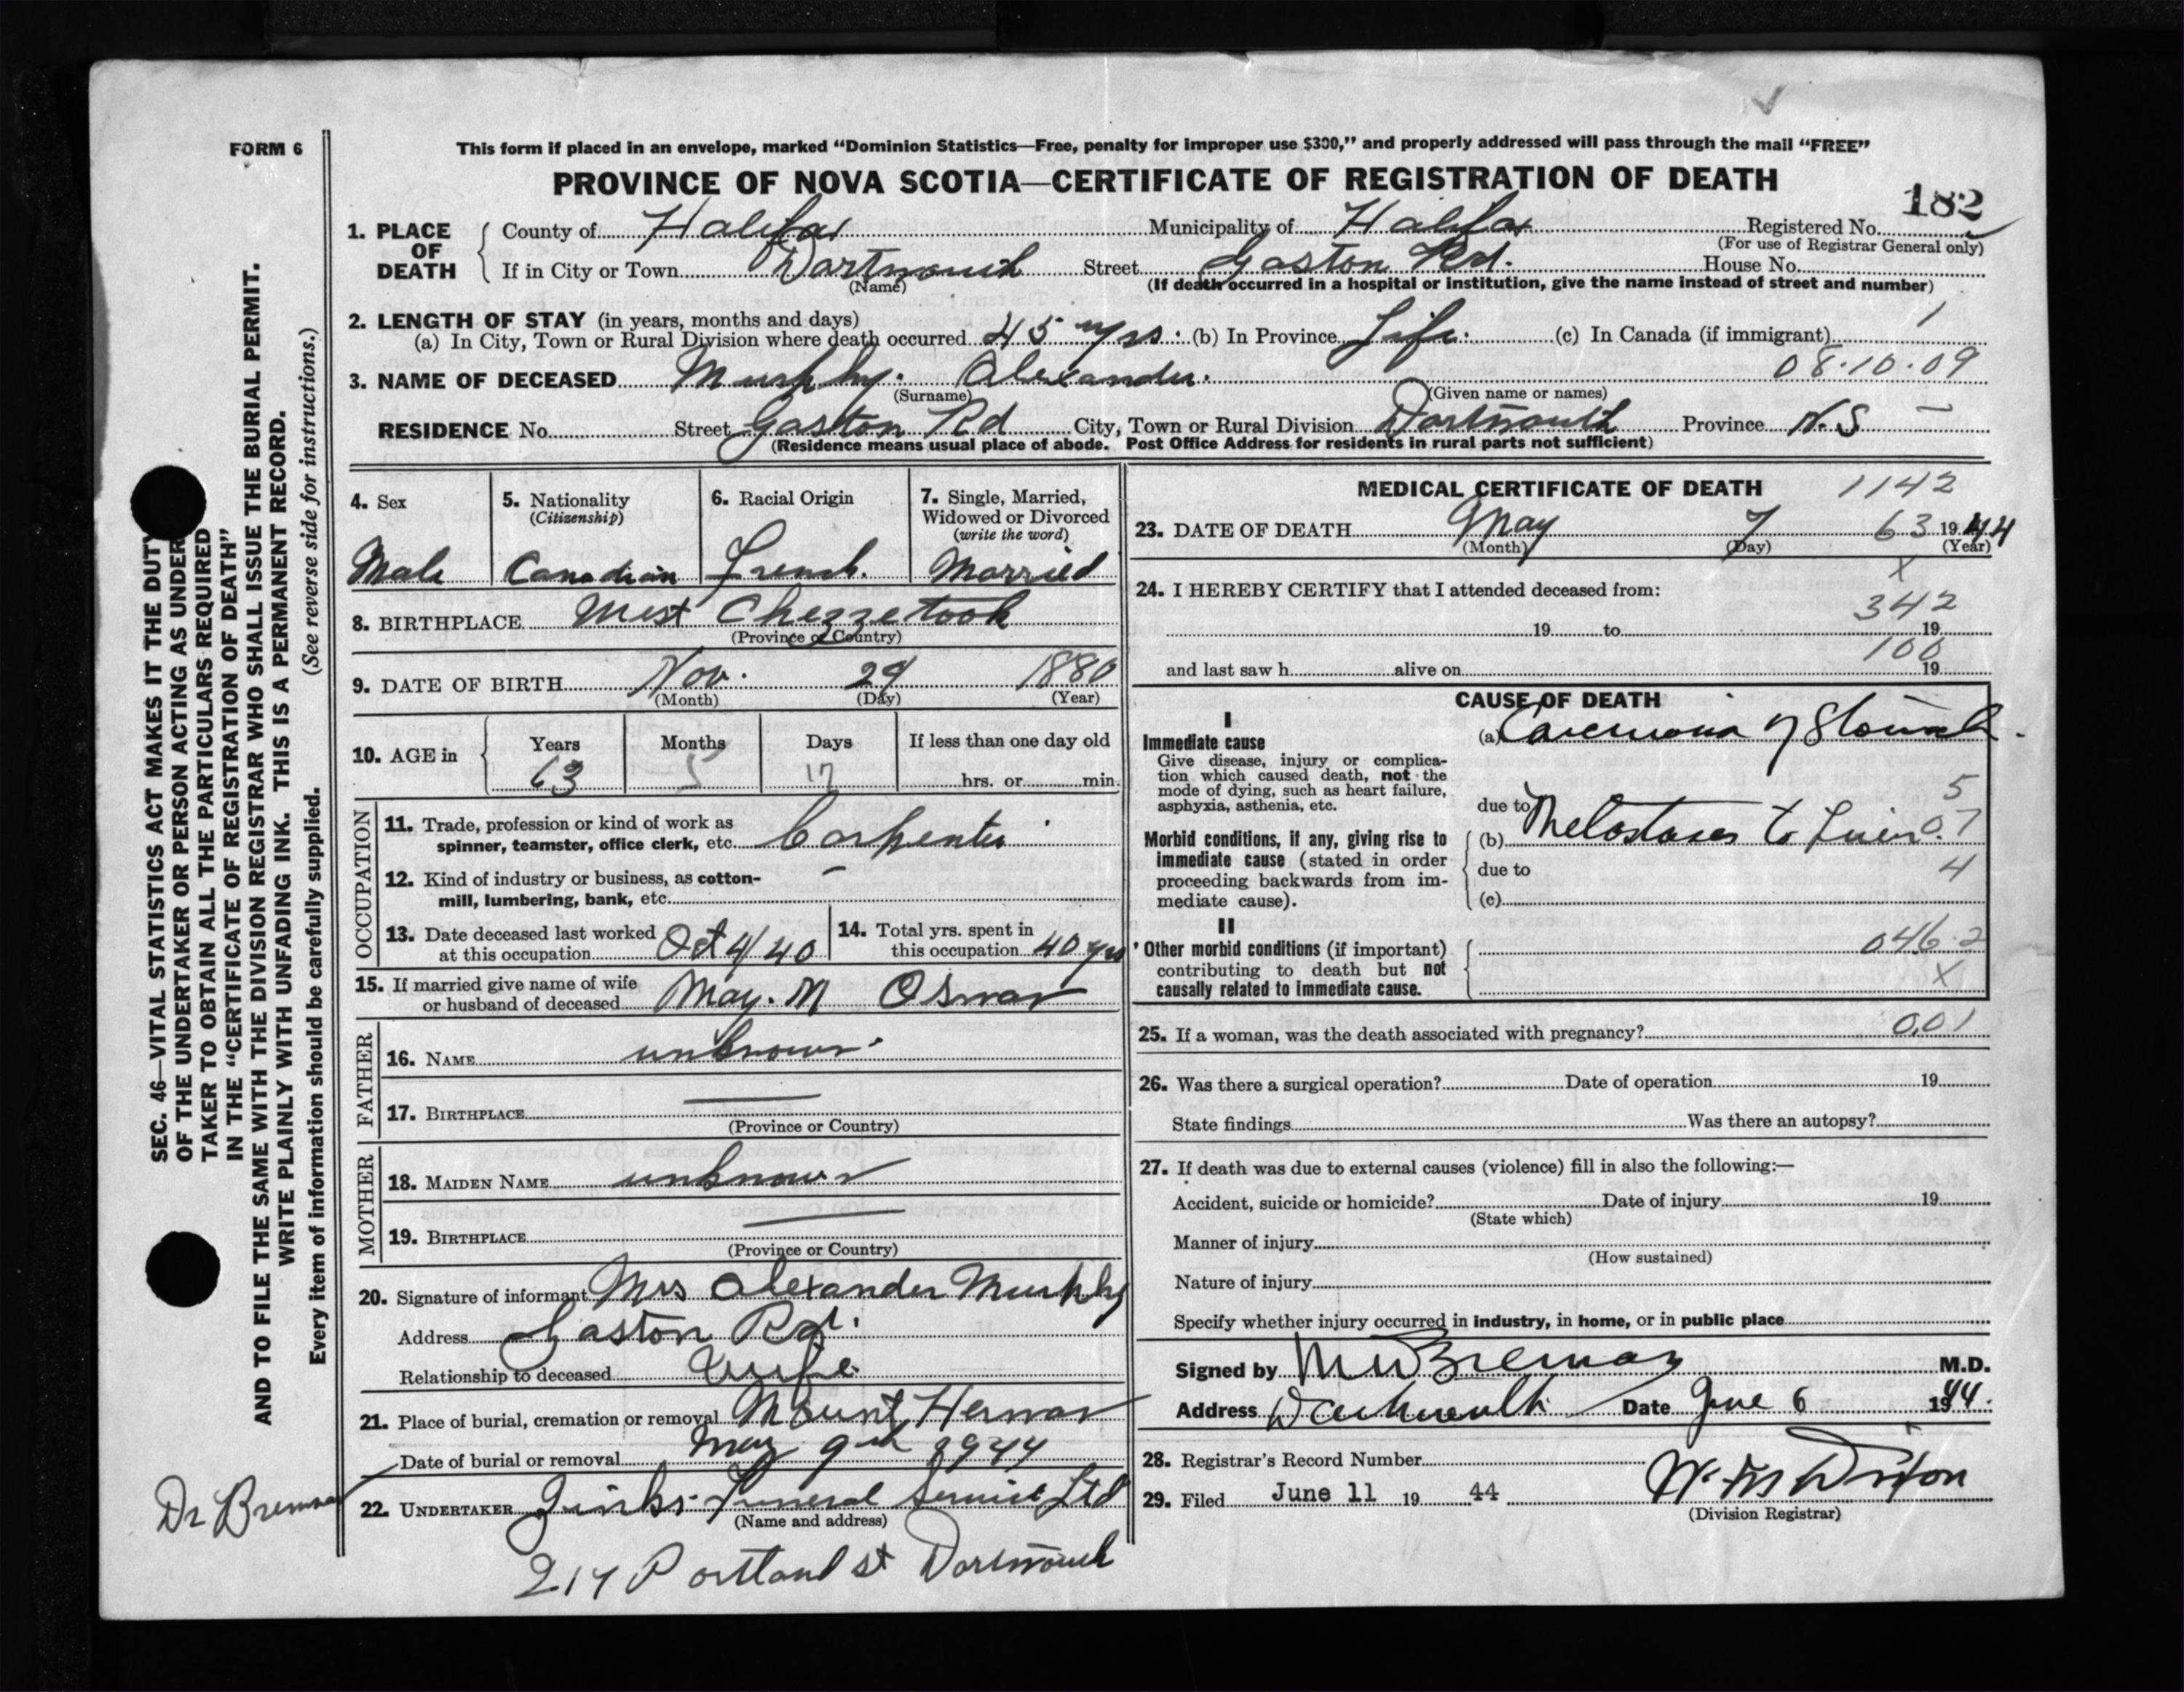 FORM 6
This form if placed in an envelope, marked "Dominion Statistics—Free, penalty for improper use $300," and properly addressed will pass through the mail "FREE"
PROVINCE OF NOVA SCOTIA—CERTIFICATE OF REGISTRATION OF DEATH
182
1. PLACE OF DEATH County of Halifax Municipality of Halifax Registered No.
(For use of Registrar General only)
If in City or Town Dartmouth Street Gaston Rd. House No.
(Name) (If death occurred in a hospital or institution, give the name instead of street and number)
2. LENGTH OF STAY (in years, months and days) 1
(a) In City, Town or Rural Division where death occurred 45 yrs. (b) In Province Life. (c) In Canada (if immigrant)
08.10.09
3. NAME OF DECEASED Murphy. Alexander.
(Surname) (Given name or names)
RESIDENCE No. Street Gaston Rd City, Town or Rural Division Dartmouth Province N.S —
(Residence means usual place of abode. Post Office Address for residents in rural parts not sufficient)
4. Sex Male
5. Nationality (Citizenship) Canadian
6. Racial Origin French.
7. Single, Married, Widowed or Divorced (write the word) Married
8. BIRTHPLACE West Chezzetcook
(Province or Country)
9. DATE OF BIRTH Nov. 29 1880
(Month) (Day) (Year)
10. AGE in Years Months Days If less than one day old
63 5 17 hrs. or min.
OCCUPATION
11. Trade, profession or kind of work as
spinner, teamster, office clerk, etc. Carpenter
12. Kind of industry or business, as cotton- —
mill, lumbering, bank, etc.
13. Date deceased last worked
at this occupation Oct 4/40
14. Total yrs. spent in
this occupation 40 yrs
15. If married give name of wife
or husband of deceased May. M
FATHER
16. NAME unknown.
17. BIRTHPLACE —
(Province or Country)
MOTHER
18. MAIDEN NAME unknown
19. BIRTHPLACE —
(Province or Country)
20. Signature of informant Mrs Alexander Murphy
Address Gaston Rd.
Relationship to deceased Wife.
21. Place of burial, cremation or removal Mount Hermon
Date of burial or removal May 9th 1944
22. UNDERTAKER Funeral Service Ltd
(Name and address)
217 Portland st Dartmouth
MEDICAL CERTIFICATE OF DEATH 1142
23. DATE OF DEATH May 7 63 1944
(Month) (Day) (Year)
X
24. I HEREBY CERTIFY that I attended deceased from:
342
19 to 19
100
and last saw h alive on 19
CAUSE OF DEATH
I
Immediate cause (a) Carcinoma of Stomach.
Give disease, injury or complica-
tion which caused death, not the
mode of dying, such as heart failure,
asphyxia, asthenia, etc.
5
due to
Morbid conditions, if any, giving rise to (b) Metastases to Liver. 07
immediate cause (stated in order
proceeding backwards from im- due to 4
mediate cause). (c)
II
Other morbid conditions (if important) 046.2
contributing to death but not
causally related to immediate cause. X
25. If a woman, was the death associated with pregnancy? 0.01
26. Was there a surgical operation? Date of operation 19
State findings Was there an autopsy?
27. If death was due to external causes (violence) fill in also the following:—
Accident, suicide or homicide? Date of injury 19
(State which)
Manner of injury
(How sustained)
Nature of injury
Specify whether injury occurred in industry, in home, or in public place
Signed by M.D.
Address Dartmouth Date June 6 1944.
28. Registrar's Record Number
29. Filed June 11 19 44
(Division Registrar)
SEC. 46—VITAL STATISTICS ACT MAKES IT THE DUTY
OF THE UNDERTAKER OR PERSON ACTING AS UNDER
TAKER TO OBTAIN ALL THE PARTICULARS REQUIRED
IN THE "CERTIFICATE OF REGISTRATION OF DEATH"
AND TO FILE THE SAME WITH THE DIVISION REGISTRAR WHO SHALL ISSUE THE BURIAL PERMIT.
WRITE PLAINLY WITH UNFADING INK. THIS IS A PERMANENT RECORD.
Every item of information should be carefully supplied. (See reverse side for instructions.)
Dr Bremner